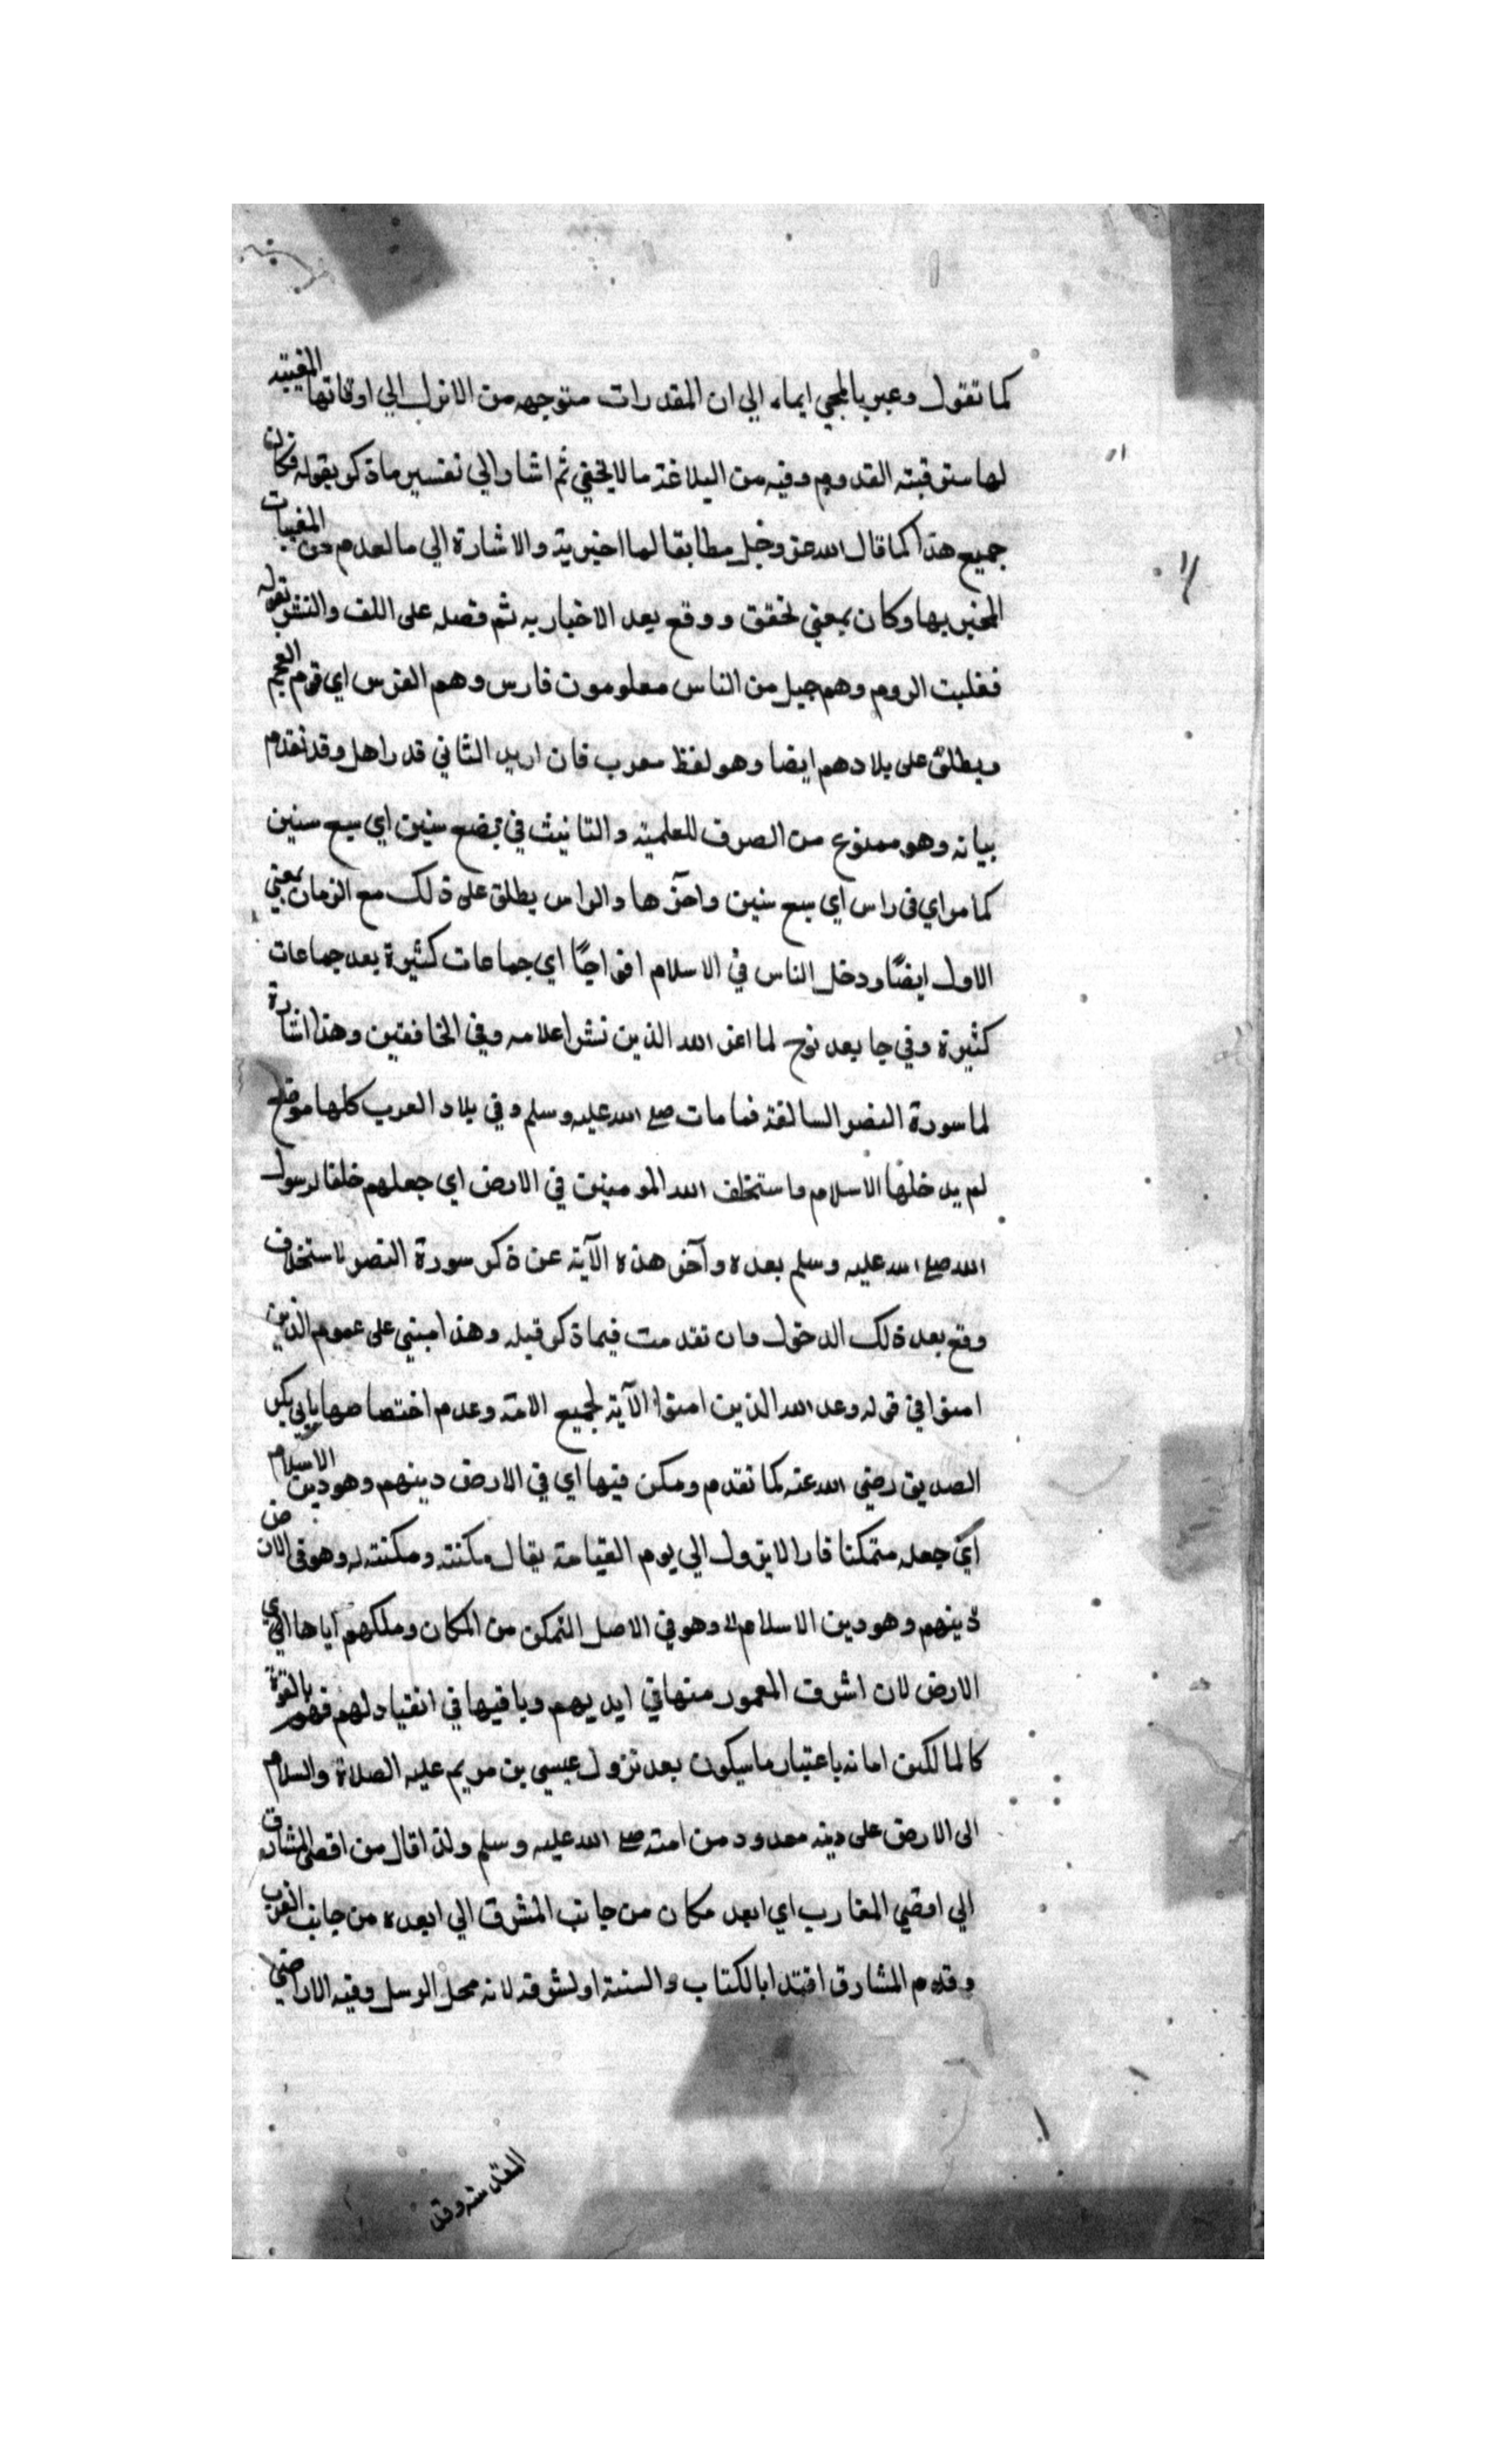 كما تقول وعبر بالمجي ايماء الي ان المقدرات متوجهه من الازل الي اوقاتها المعينه
لها مترقبته القدوم وفيه من البلاغة ما لا يخفي ثم اشار الي تفسير ما ذكر بقوله فكان
جميع هذا كما قال الله عز وجل مطابقا لما اخبر به والاشارة الي ما تقدم من المغيبات
المخبر بها وكان بمعني تحقق ووقع بعد الاخبار به ثم فصله على اللف والنشر بقوله
فغلبت الروم وهم جيل من الناس معلومون فارس وهم الفرس اي قوم العجم
ويطلق على بلادهم ايضا وهو لفظ معرب فان اريد الثاني قدر اهل وقد تقدم
بيانه وهو ممنوع من الصرف للعلمية والتانيث في بضع سنين اي سبع سنين
كما مر اي في راس اي سبع سنين واخرها والراس يطلق على ذلك مع الزمان بمعني
الاول ايضًا ودخل الناس في الاسلام افواجًا اي جماعات كثيرة بعد جماعات
كثيرة وفي جا بعد نوح لما اعز الله الذين نشر اعلامه وفي الخافقين وهذا اشارة
لما سورة النصر السالفة فما مات صلے الله عليه وسلم وفي بلاد العرب كلها موضع
لم يدخلها الاسلام واستخلف الله المومنين في الارض اي جعلهم خلفا لرسول
الله صلے الله عليه وسلم بعده وآخر هذه الآية عن ذكر سورة النصر لاستخلاف
وقع بعد ذلك الدخول وان تقدمت فيما ذكر قبله وهذا مبني على عموم الذين
امنوا في قوله وعد الله الذين امنوا الآية لجميع الامة وعدم اختصاصها بابي بكر
الصديق رضي الله عنه كما تقدم ومكن فيها اي في الارض دينهم وهو دين الاسلام
اي جعله متمكنا قارا لا يزول الي يوم القيامة يقال مكنته ومكنته له وهو في الارض
دينهم وهو دين الاسلام وهو في الاصل التمكن من المكان وملكهم اياها اي
الارض لان اشرف المعمور منها في ايديهم وباقيها في انقياد لهم فهو بالقوة
كالمالكين اما نه باعتبار ما سيكون بعد نزول عيسي بن مريم عليه الصلاة والسلام
الى الارض على دينه معدود من امته صلے الله عليه وسلم ولذا قال من اقصى المشارق
الي اقصي المغارب اي ابعد مكان من جانب المشرق الي ابعده من جانب الغرب
وقدم المشارق اقتدا بالكتاب والسنة او لشرفه لانه محل الرسل وفيه الاراضي
المقدسة وقد